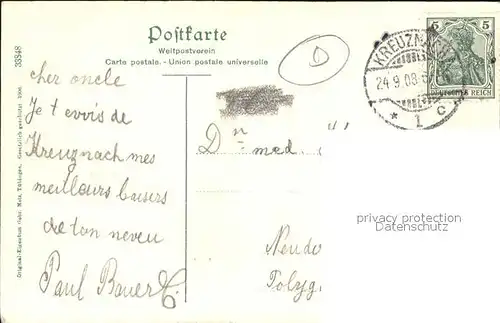 33848
Postkarte
Weltpostverein
Carte postale. - Union postale universelle
D
5 5
DEUTSCHES REICH
KREUZNACH
24.9.08.
* 1 c
cher oncle
Je t evvis de
Kreuznach mes
meilleurs baisers
de ton neveu
Paul Bauer
Dr med.
privacy protection
Datenschutz
Original-Eigentum Gebr. Metz, Tübingen. Gesetzlich geschützt 1906.